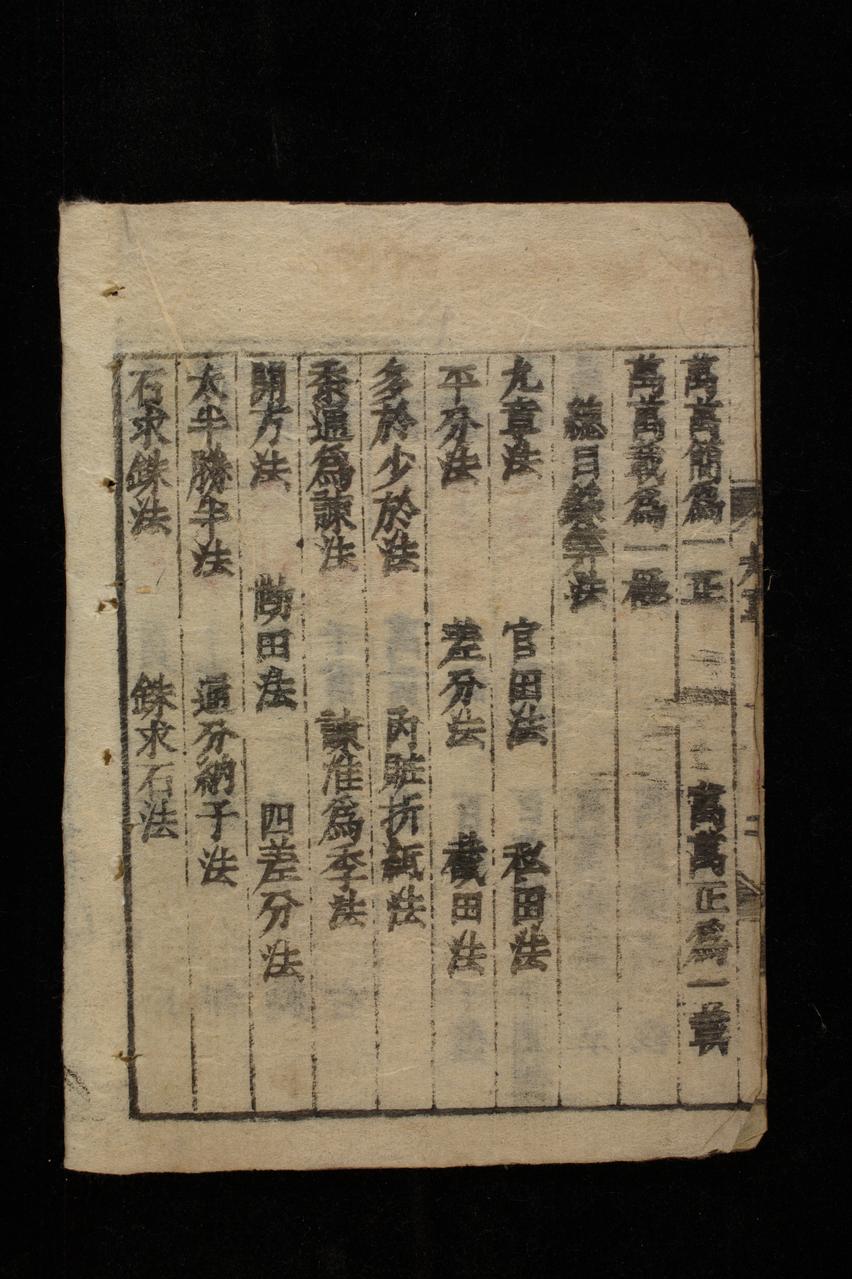 萬萬簡爲一正　萬萬正爲一載
萬萬載爲一極
總目録筭法
九章法　官田法　私田法
平分法　差分法　截田法
多於少於法　丙賍折紙法
黍通爲諫法　諫准爲季法
開方法　勛田法　四差分法
太半勝半法　通分納子法
石求銖法　銖求石法